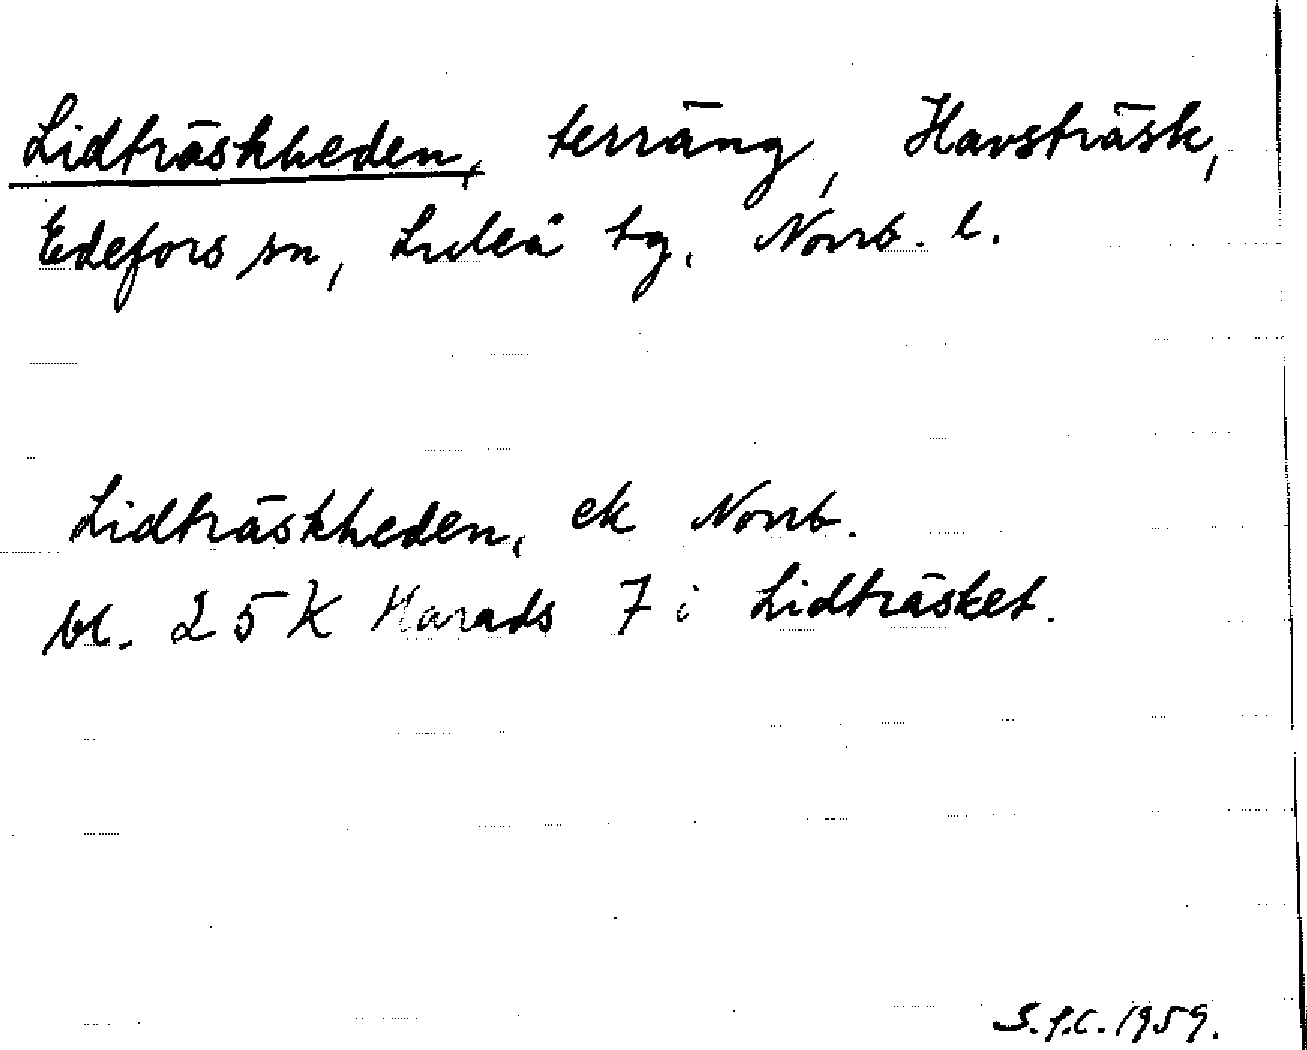 Lidträskheden, terräng, Havsträsk,
Edefors sn, Luleå tg, Norrb. l.
Lidträskheden, ek Norrb.
bl. 25 K Harads 7 i Lidträsket.
S.P.C. 1959.